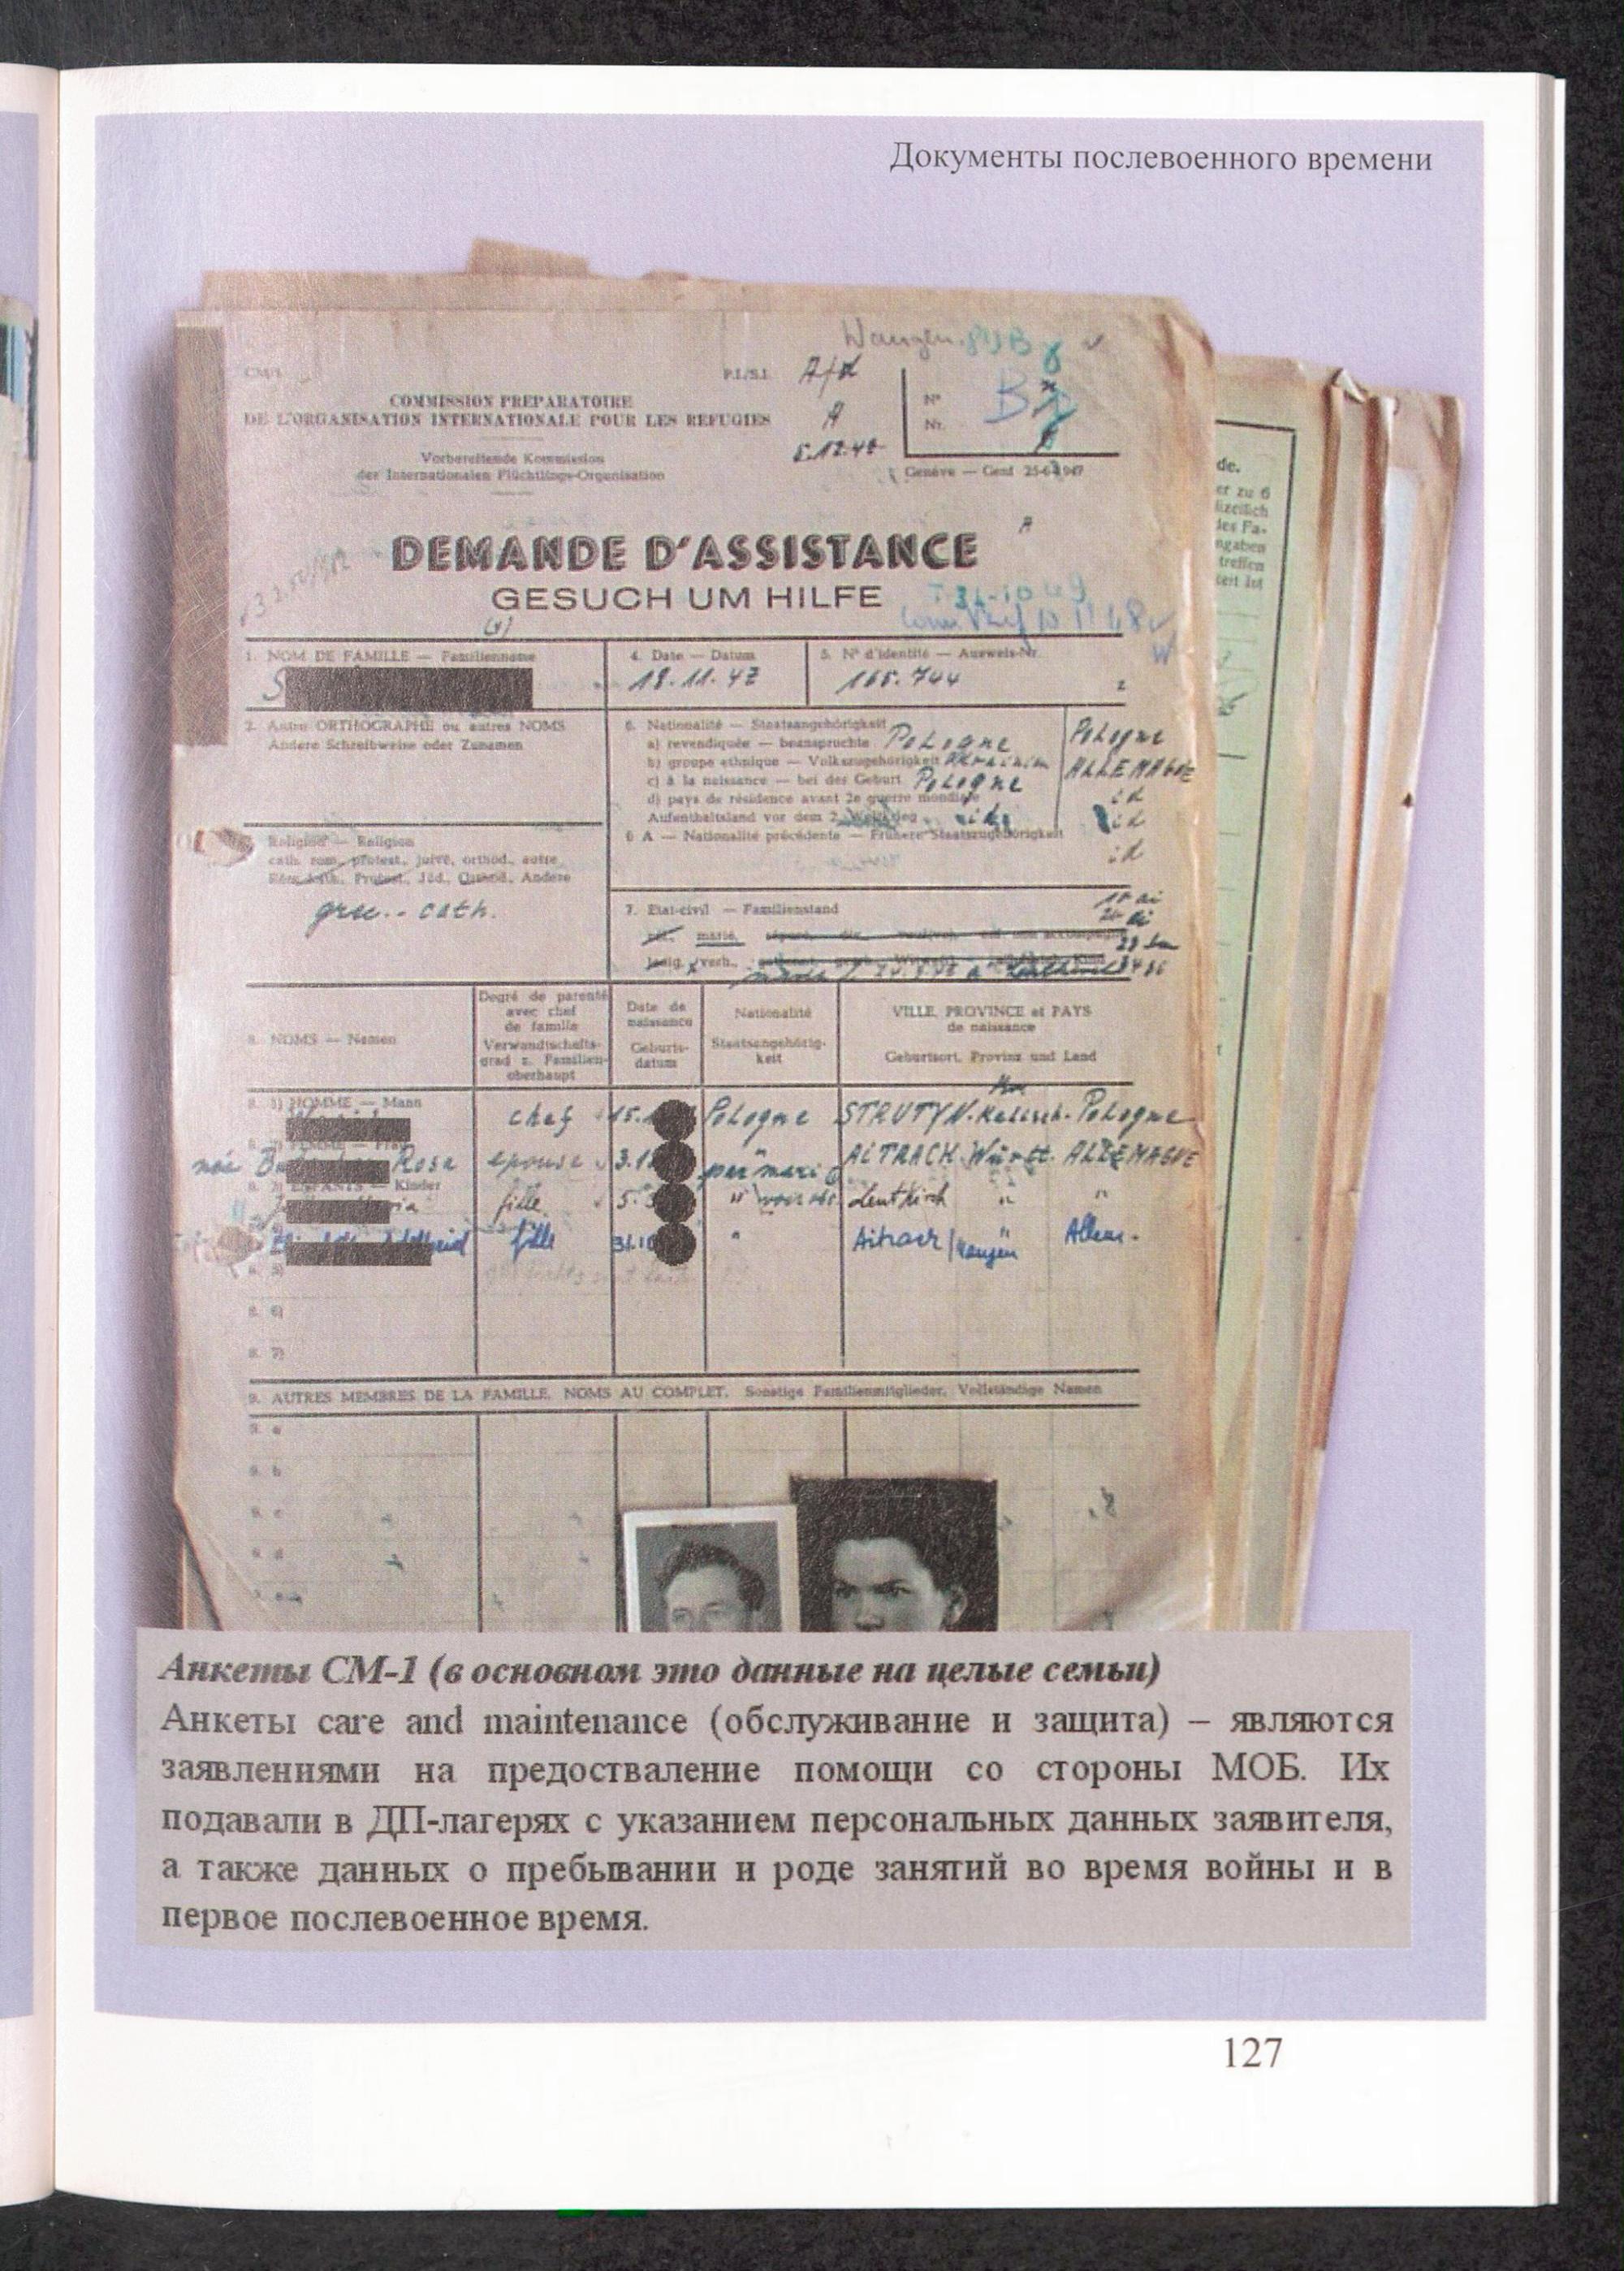 Документы послевоенного времени
Wangen
CM/1
P.I./S.I.
COMMISSION PREPARATOIRE
DE L'ORGANISATION INTERNATIONALE POUR LES REFUGIES
A
5.12.48
N°
Nr.
Vorbereitende Kommission
der Internationalen Flüchtlings-Organisation
Genève — Genf
DEMANDE D'ASSISTANCE
GESUCH UM HILFE
1. NOM DE FAMILLE — Familienname
S
4. Date — Datum
18.11.47
5. N° d'identité — Ausweis-Nr.
165.744
2. Autre ORTHOGRAPHE ou autres NOMS
Andere Schreibweise oder Zunamen
6. Nationalité — Staatsangehörigkeit
a) revendiquée — beanspruchte Pologne
Pologne
b) groupe ethnique — Volkszugehörigkeit
ALLEMAGNE
c) à la naissance — bei der Geburt Pologne
id
d) pays de résidence avant 2e guerre mondiale
Aufenthaltsland vor dem 2. Weltkrieg id
id
6 A — Nationalité précédente — Frühere Staatszugehörigkeit
id
Religion — Religion
cath. rom., protest., juive, orthod., autre
Röm. kath., Protest., Jüd., Orthod., Andere
grec.- cath.
7. Etat-civil — Familienstand
marié,
ledig, verh.,
8. NOMS — Namen
Degré de parenté
avec chef
de famille
Verwandtschafts-
grad z. Familien-
oberhaupt
Date de
naissance
Geburts-
datum
Nationalité
Staatsangehörig-
keit
VILLE, PROVINCE et PAYS
de naissance
Geburtsort, Provinz und Land
8. 1) HOMME — Mann
chef 15. Pologne STRUTYN. Pologne
8. 2) FEMME — Frau
née Rosa épouse 3. par mari AITRACH Württ. ALLEMAGNE
8. 3) ENFANTS — Kinder
fille 5. " Leutkirch " "
fille 31. " Aitrach/Wangen " Allem.
8. 5)
8. 6)
8. 7)
9. AUTRES MEMBRES DE LA FAMILLE, NOMS AU COMPLET. Sonstige Familienmitglieder, Vollständige Namen
9. a
9. b
9. c
9. d
de.
er zu 6
lizeilich
des Fa-
ngaben
treffen
Анкеты СМ-1 (в основном это данные на целые семьи)
Анкеты care and maintenance (обслуживание и защита) – являются
заявлениями на предостваление помощи со стороны МОБ. Их
подавали в ДП-лагерях с указанием персональных данных заявителя,
а также данных о пребывании и роде занятий во время войны и в
первое послевоенное время.
127